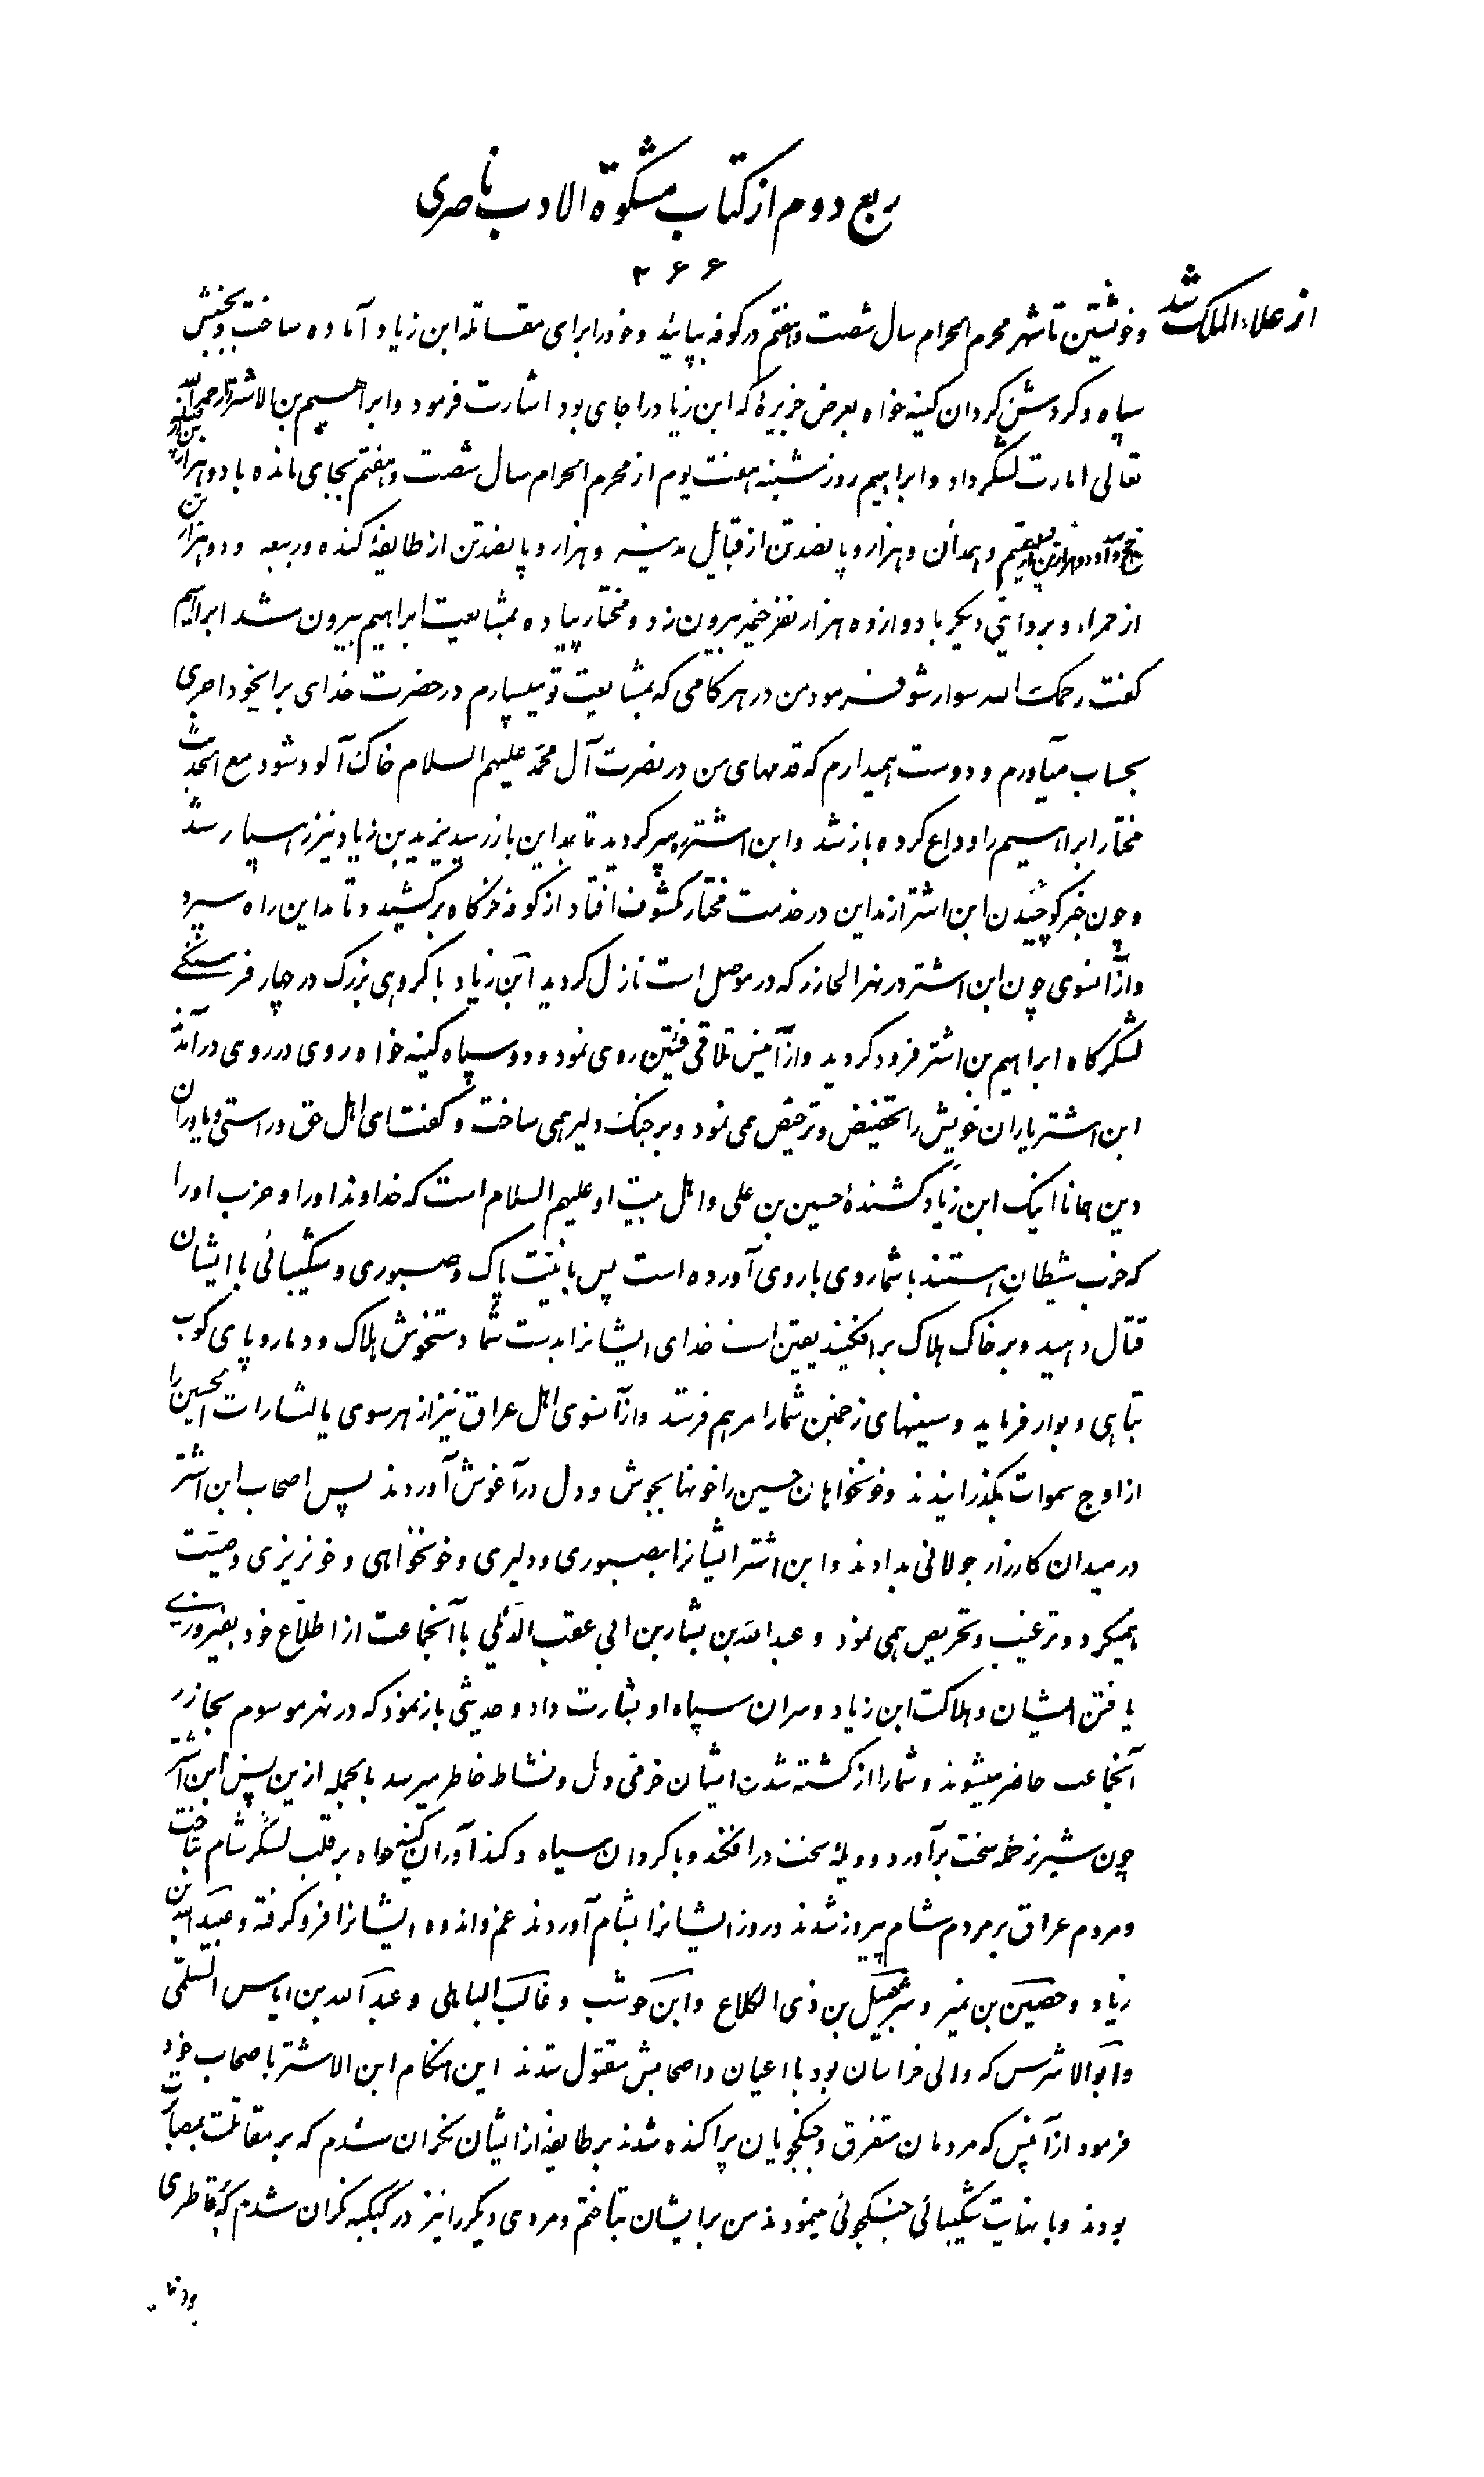 ربع دوم از کتاب مشکوة الادب ناصری
۲۶۶
از علاء الملک شد
و خویشتن تا شهر محرم الحرام سال شصت و هفتم در کوفه بپائید و خود را برای مقاتله ابن زیاد آماده ساخت و بجنبش
سپاه و گردش گردان کینه خواه بعرض جزیره که ابن زیاد را جای بود اشارت فرمود و ابراهیم بن الاشتر رحمه الله
تعالی امارت لشگر داد و ابراهیم روز شنبه هفت یوم از محرم الحرام سال شصت و هفتم بجای مانده با دو هزار تن از
مذحج و اسد و دو هزار تن از تمیم و همدان و هزار و پانصد تن از قبایل مدینه و هزار و پانصد تن از طایفهٔ کنده و ربیعه و دو هزار تن
از حمراء و بروایتی دیگر با دوازده هزار نفر خیمه بیرون زد و مختار پیاده بمشایعت ابراهیم بیرون شد ابراهیم
گفت رحمک الله سوار شو فرمود من در هر گامی که بمشایعت تو میسپارم در حضرت خدای برای خود اجری
بحساب میآورم و دوست همیدارم که قدمهای من در نصرت آل محمد علیهم السلام خاک آلود شود مع الحدیث
مختار ابراهیم را وداع کرده باز شد و ابن اشتر ره سپر گردید تا بمداین باز رسید یزید بن زیاد نیز رهسپار شد
و چون خبر کوچیدن ابن اشتر از مداین در خدمت مختار مکشوف افتاد از کوفه خرگاه برکشید و تا مداین راه سپرد
و از آنسوی چون ابن اشتر در نهر الخازر که در موصل است نازل گردید ابن زیاد با گروهی بزرگ در چهار فرسنگی
لشگرگاه ابراهیم بن اشتر فرود گردید و از آن پس تلاقی فئتین روی نمود و دو سپاه کینه خواه روی در روی درآمدند
ابن اشتر یاران خویش را تحضیض و ترخیص همی نمود و بر جنگ دلیر همی ساخت و گفت ای اهل حق و راستی و یاوران
دین همانا اینک ابن زیاد کشندهٔ حسین بن علی و اهل بیت او علیهم السلام است که خداوند او را و حزب او را
که حزب شیطان هستند با شما روی با روی آورده است پس با نیت پاک و صبوری و شکیبائی با ایشان
قتال دهید و بر خاک هلاک برافکنید یقین است خدای ایشانرا بدست شما دستخوش هلاک و دمار و پای کوب
تباهی و بوار فرماید و سینهای زخمین شما را مرهم فرستد و از آنسوی اهل عراق نیز از هر سوی یا لثارات الحسین را
از اوج سموات بگذرانیدند و خونخواهان حسین را خونها بجوش و دل در آغوش آوردند پس اصحاب ابن اشتر
در میدان کارزار جولانی بدادند و ابن اشتر ایشانرا بصبوری و دلیری و خونخواهی و خونریزی وصیت
همیکرد و ترغیب و تحریص همی نمود و عبدالله بن بشار بن ابی عقب الدئلی با آنجماعت از اطلاع خود بفیروزی
یافتن ایشان و هلاکت ابن زیاد و سران سپاه او بشارت داد و حدیثی باز نمود که در نهر موسوم بخازر
آنجماعت حاضر میشوند و شما را از کشته شدن ایشان خرمی دل و نشاط خاطر میرسد بالجمله از ین پس ابن اشتر
چون شیر نر حمله سخت برآورد و ولوله سخت درافکند و با گردان سپاه و کندآوران کینه خواه بر قلب لشگر شام بتاخت
و مردم عراق بر مردم شام پیروز شدند و روز ایشانرا بشام آوردند غم و اندوه ایشانرا فرو گرفته و عبیدالله بن
زیاد و حصین بن نمیر و شرحبیل بن ذی الکلاع و ابن حوشب و غالب الباهلی و عبدالله بن ایاس السلمی
و ابوالاشرس که والی خراسان بود با اعیان و اصحابش مقتول شدند این هنگام ابن الاشتر با صحاب خود
فرمود از آن پس که مردمان متفرق و جنگجویان پراکنده شدند بر طایفهٔ از ایشان نگران شدم که بر مقاتلت بمصابرت
بودند و با نهایت شکیبائی جنگجوئی مینمودند من بر ایشان بتاختم و مردی دیگر را نیز در کبکبه نگران شدم که گوئی قاطری
بودند